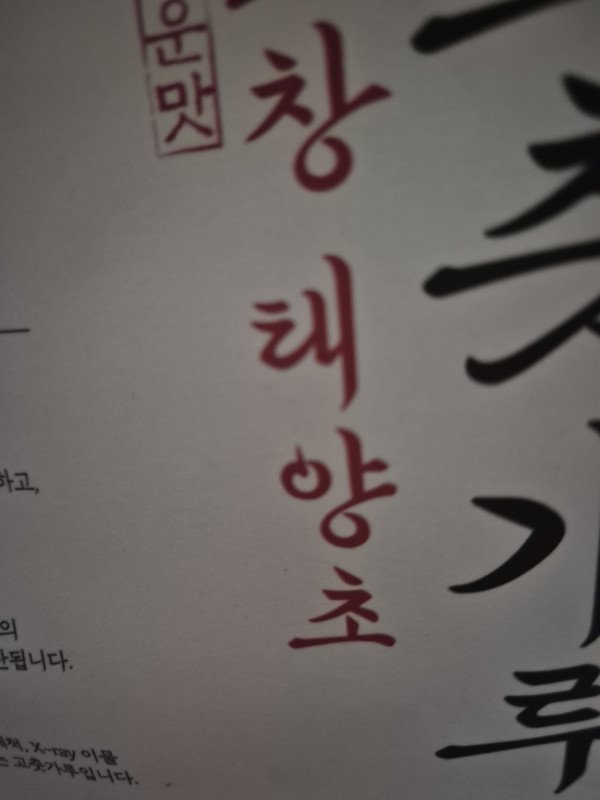 운맛
창 태양초
춧가루
하고,
의
됩니다.
세척, X-ray 이물
고춧가루입니다.